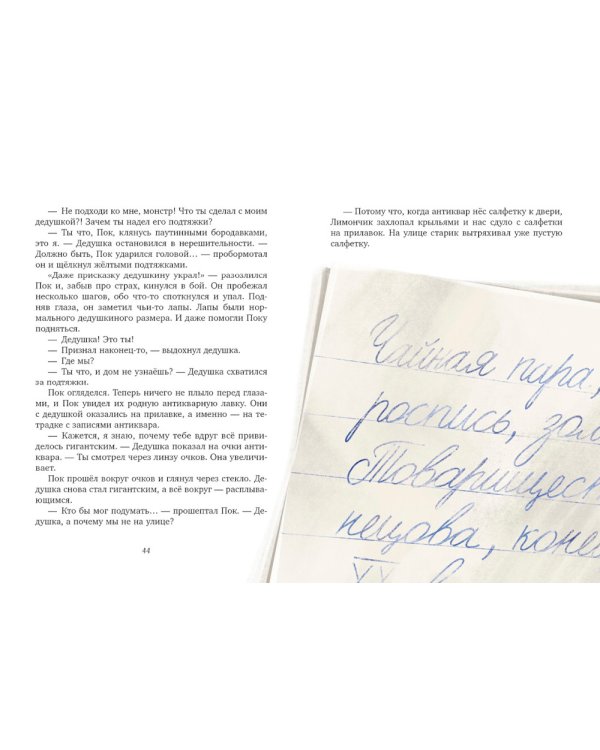 — Не подходи ко мне, монстр! Что ты сделал с моим
дедушкой?! Зачем ты надел его подтяжки?
— Ты что, Пок, клянусь паутинными бородавками,
это я. — Дедушка остановился в нерешительности. —
Должно быть, Пок ударился головой… — пробормотал
он и щёлкнул жёлтыми подтяжками.
«Даже присказку дедушкину украл!» — разозлился
Пок и, забыв про страх, кинулся в бой. Он пробежал
несколько шагов, обо что-то споткнулся и упал. Под-
няв глаза, он заметил чьи-то лапы. Лапы были нор-
мального дедушкиного размера. И даже помогли Поку
подняться.
— Дедушка! Это ты!
— Признал наконец-то, — выдохнул дедушка.
— Где мы?
— Ты что, и дом не узнаёшь? — Дедушка схватился
за подтяжки.
Пок огляделся. Теперь ничего не плыло перед глаза-
ми, и Пок увидел их родную антикварную лавку. Они
с дедушкой оказались на прилавке, а именно — на те-
традке с записями антиквара.
— Кажется, я знаю, почему тебе вдруг всё приви-
делось гигантским. — Дедушка показал на очки анти-
квара. — Ты смотрел через линзу очков. Она увеличи-
вает.
Пок прошёл вокруг очков и глянул через стекло. Де-
душка снова стал гигантским, а всё вокруг — расплыва-
ющимся.
— Кто бы мог подумать… — прошептал Пок. — Де-
душка, а почему мы не на улице?
44
— Потому что, когда антиквар нёс салфетку к двери,
Лимончик захлопал крыльями и нас сдуло с салфетки
на прилавок. На улице старик вытряхивал уже пустую
салфетку.
Чайная пара,
роспись, зол
Товариществ
нецова, коне
XX в